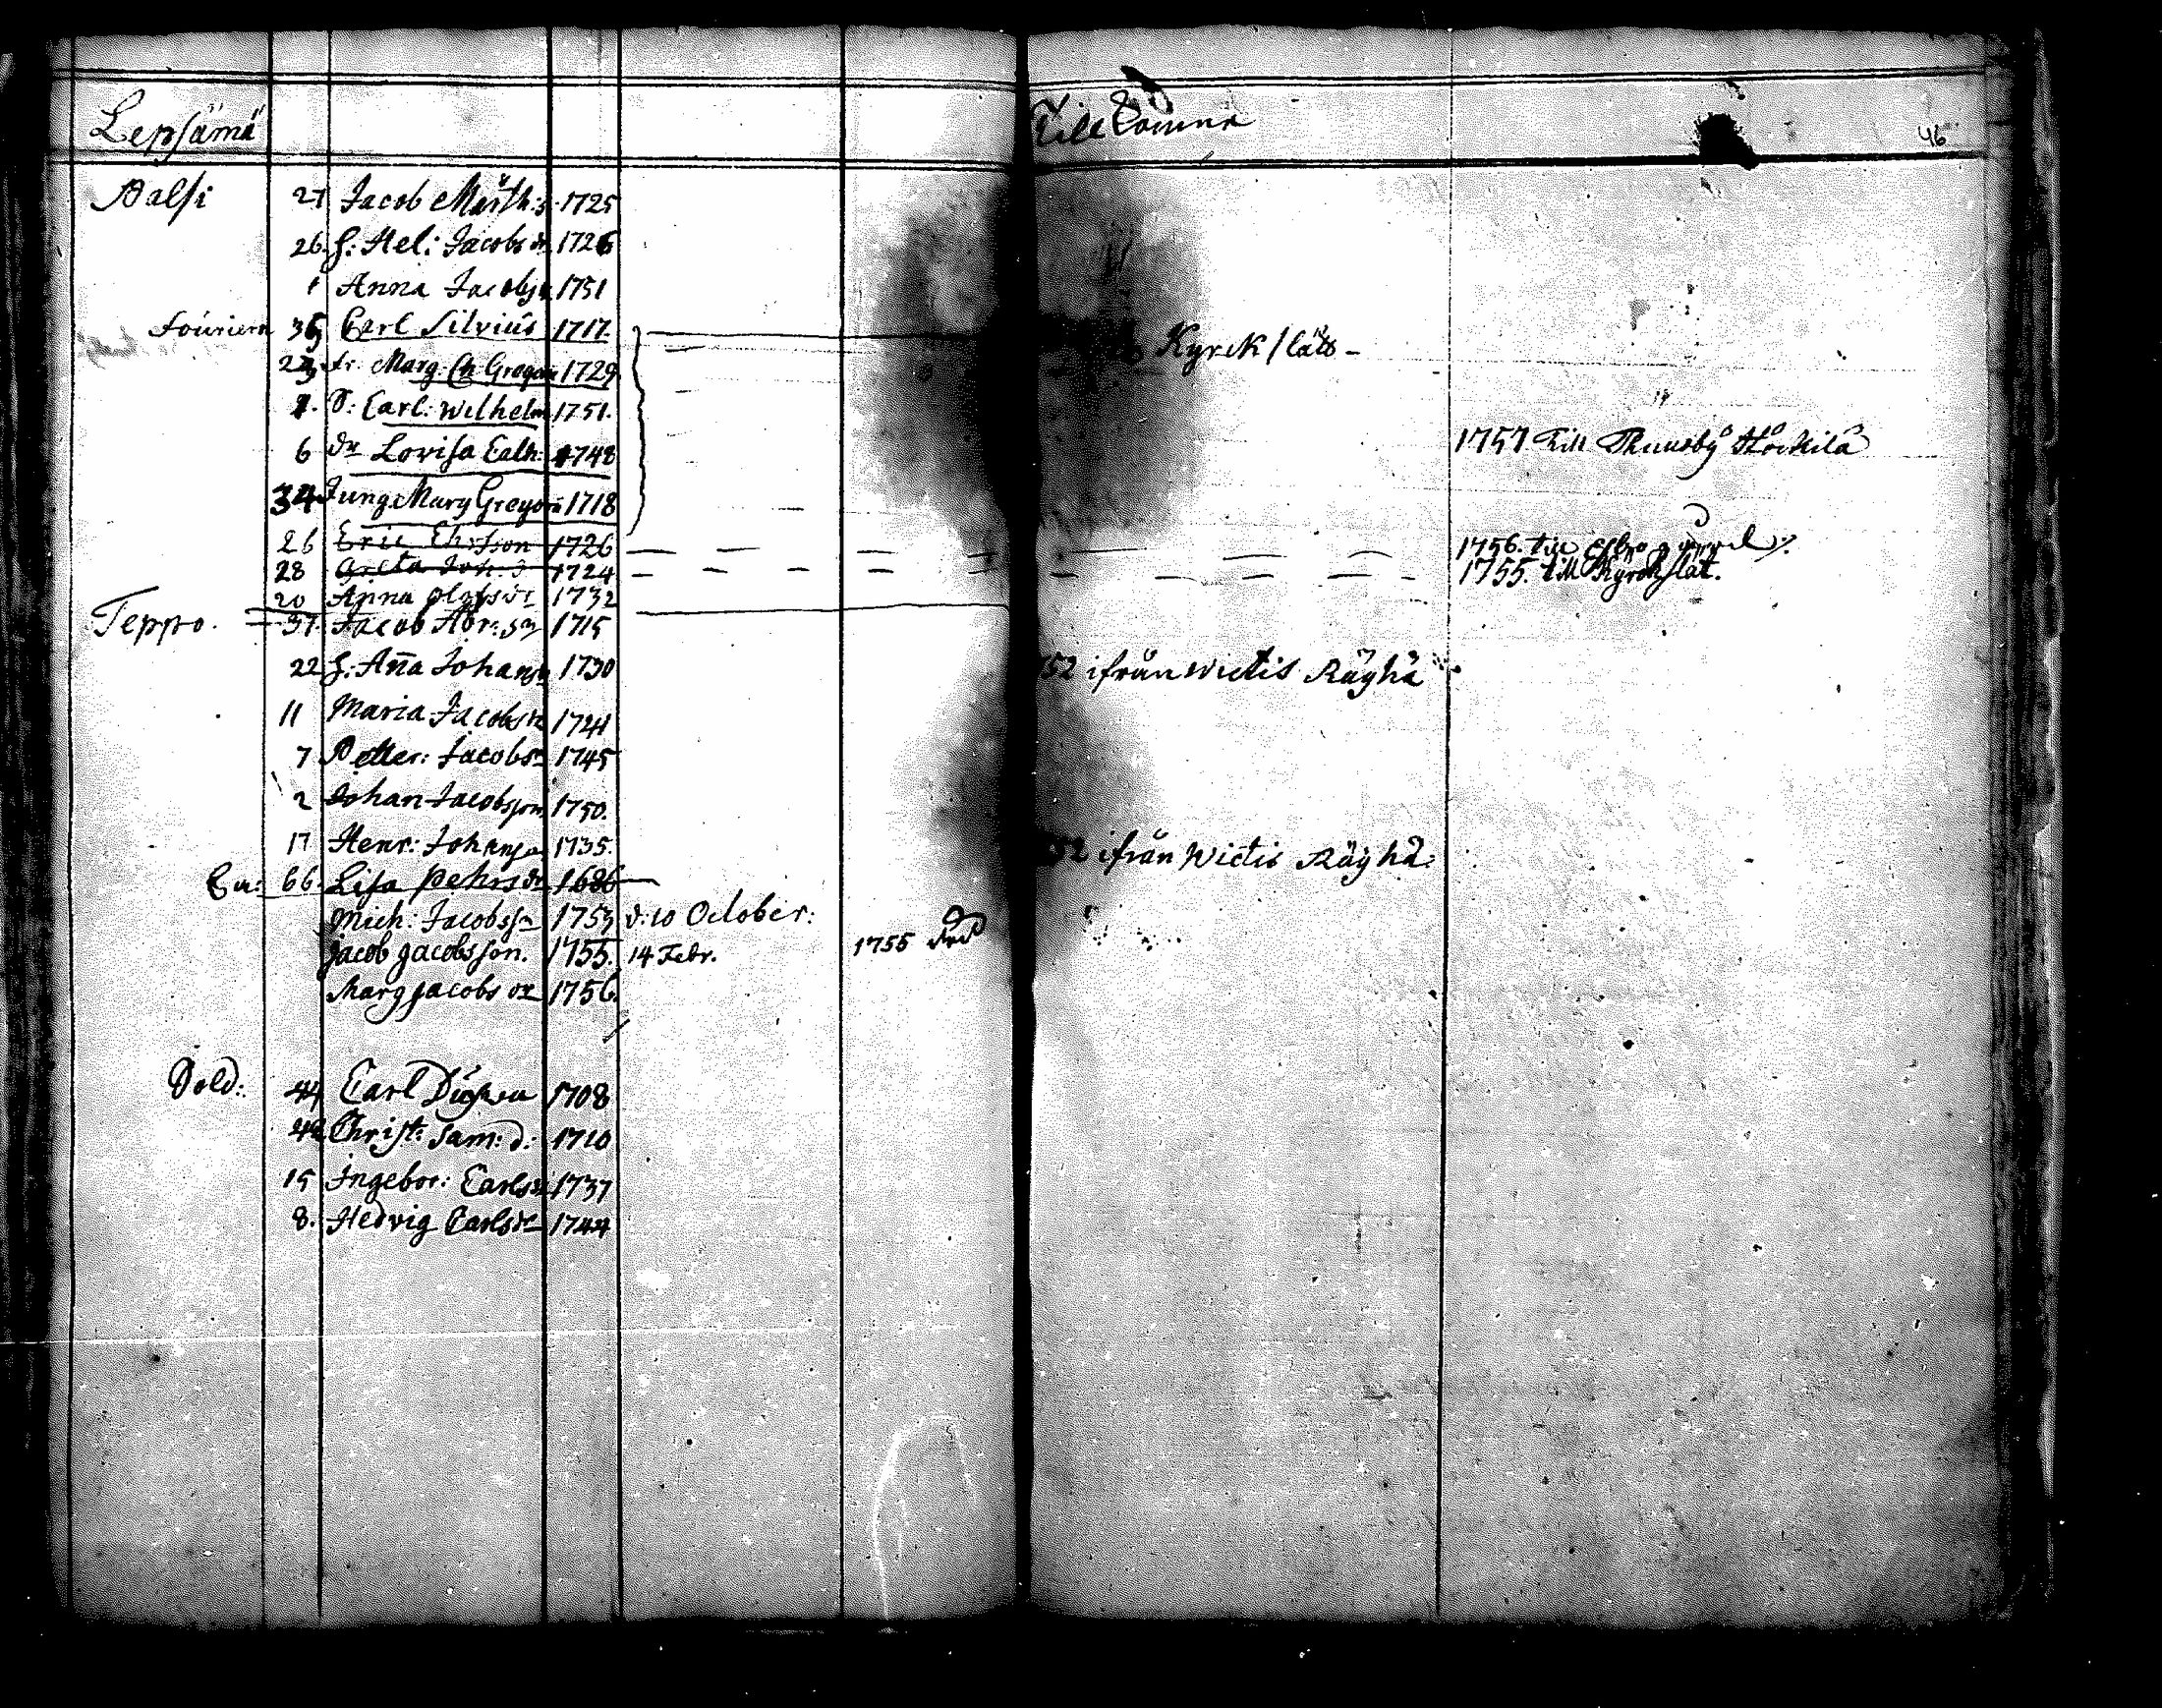 Lepsämä Till Komne 46
Palsi 27 Jacob Märth:s 1725
26 h: Hel: Jacobs dr 1726
1 Anna Jacobs 1751
Fouriern 35 Carl Silvius 1717. Kyrckslätt
23 fr: Marg: Ch Gregori 1729
1. S: Carl: Wilhelm 1751.
6 dr Lovisa Cath: 1748 1757 till Thuusby
34 Jung Marg Gregori 1718
26 Eric Ehrsson 1726 1756. till Esbo
28 Greta Joh. 1724 1755. till Kyrckslät.
20 Anna Olofs dr 1732
Teppo. 37. Jacob Abr: sn 1715
22 h: Anna Johans 1730 52 ifrån Wictis Räyhä
11 Maria Jacobs dr 1741
7 Petter: Jacobs 1745
2 Johan Jacobsson 1750.
17 Henr: Johans 1735. 52 ifrån Wictis Räyhä:
En: 66 Lisa Pehrs dr 1686
Mich: Jacobss 1753 d: 10 October:
Jacob Jacobsson. 1755. 14 Febr. 1755 död
Marg Jacobs dr 1756.
Sold: 44 Carl 1708
42 Christ: Sam: d: 1710
15 Ingebor: Carls 1737
8. Hedvig Carls dr 1744